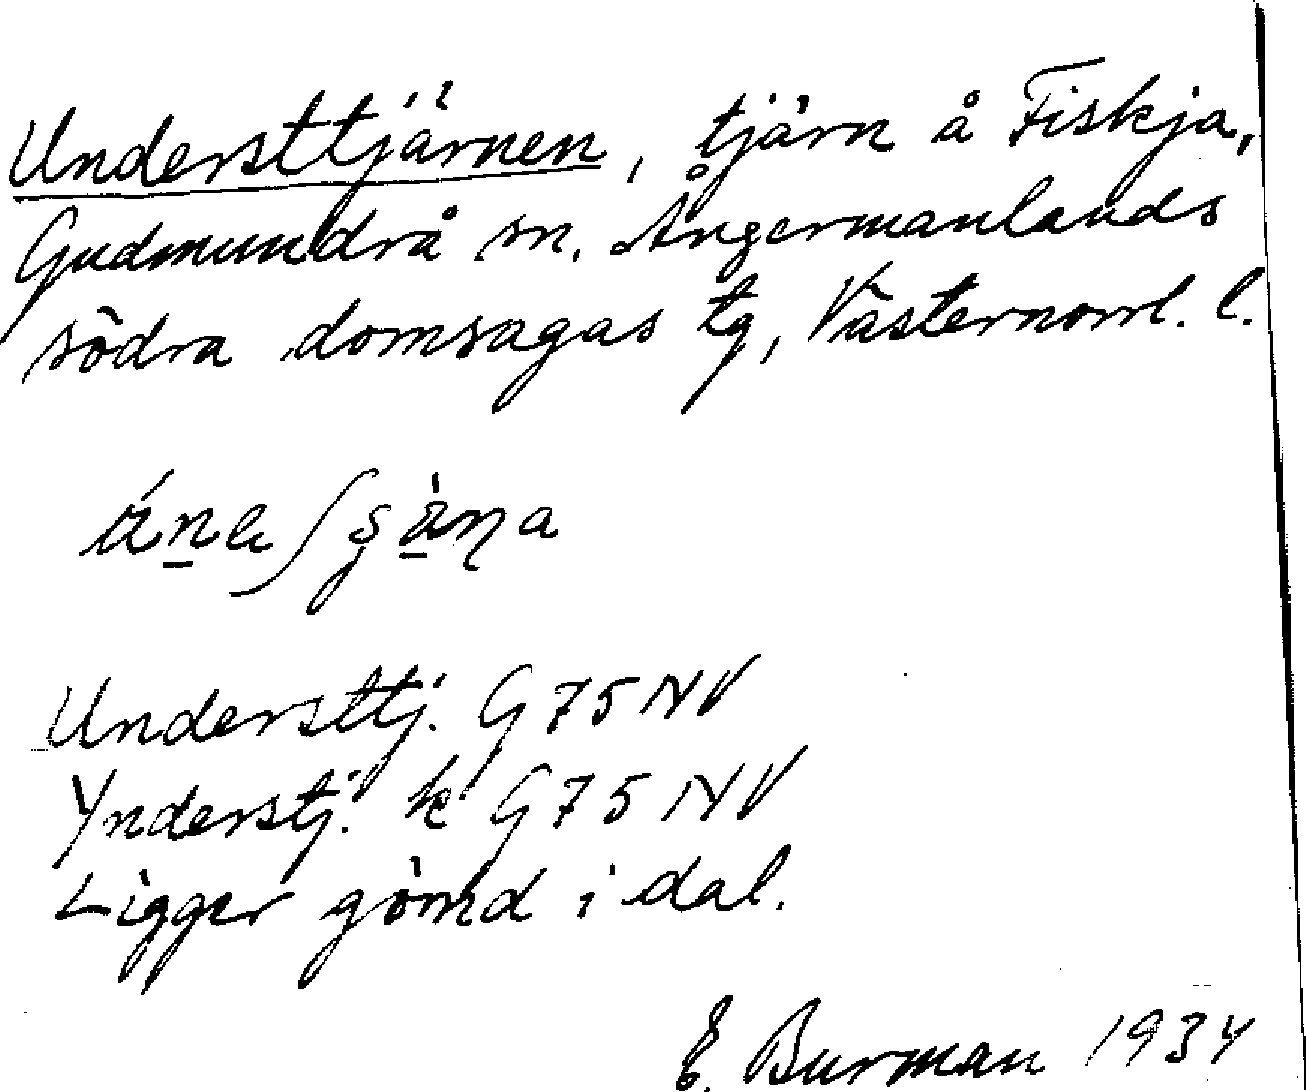 Understtjärnen, tjärn å Fiskja,
Gudmundrå sn. Ångermanlands
södra domsagas tg, Västernorrl. l.
Understtj. G 75 NV
Ynderstj. k G 75 NV
Ligger gömd i dal.
E. Burman 1934